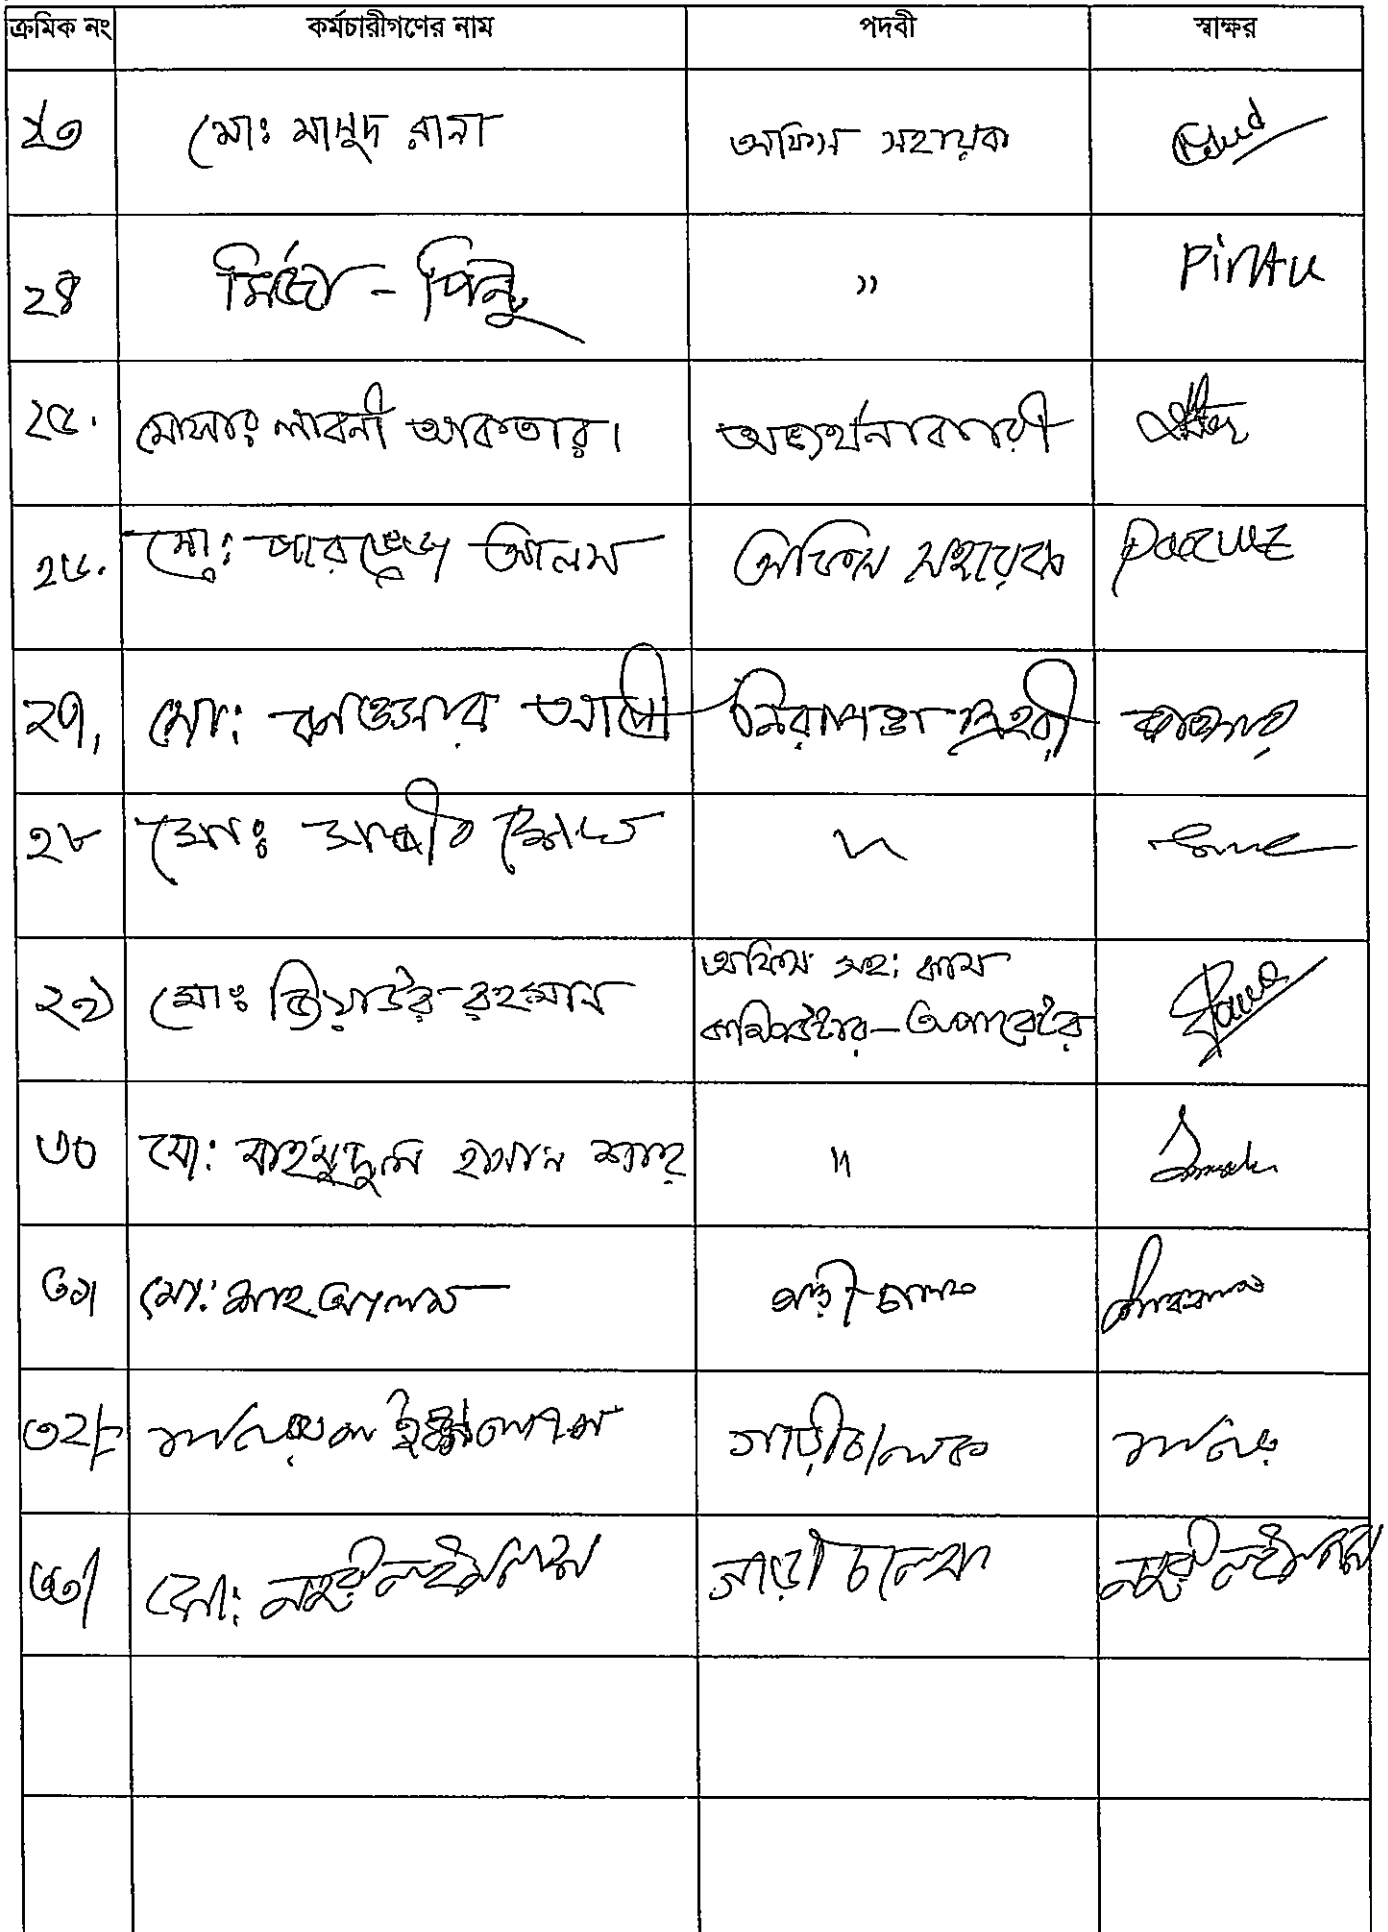 ক্রমিক নং কর্মচারীগণের নাম পদবী স্বাক্ষর
২৩ মোঃ মাসুদ রানা অফিস সহায়ক
২৪ মির্জা - পিন্টু " Pintu
২৫. মোসাঃ লাবনী আকতার। অভ্যর্থনাকারী
২৬. মো: পারভেজ আলম অফিস সহায়ক Parvez
২৭, মো: কাওসার আলী নিরাপত্তা প্রহরী কাওসার
২৮ মোঃ "
২৯ মোঃ জিয়াউর রহমান অফিস সহ: কাম
কম্পিউটার - অপারেটর
৩০ মো: মাহমুদুল হাসান শাহ "
৩১ মো: শাহ আলম গাড়ী চালক
৩২। ইসলাম গাড়ীচালক
৩৩। মো: গাড়ী চালক